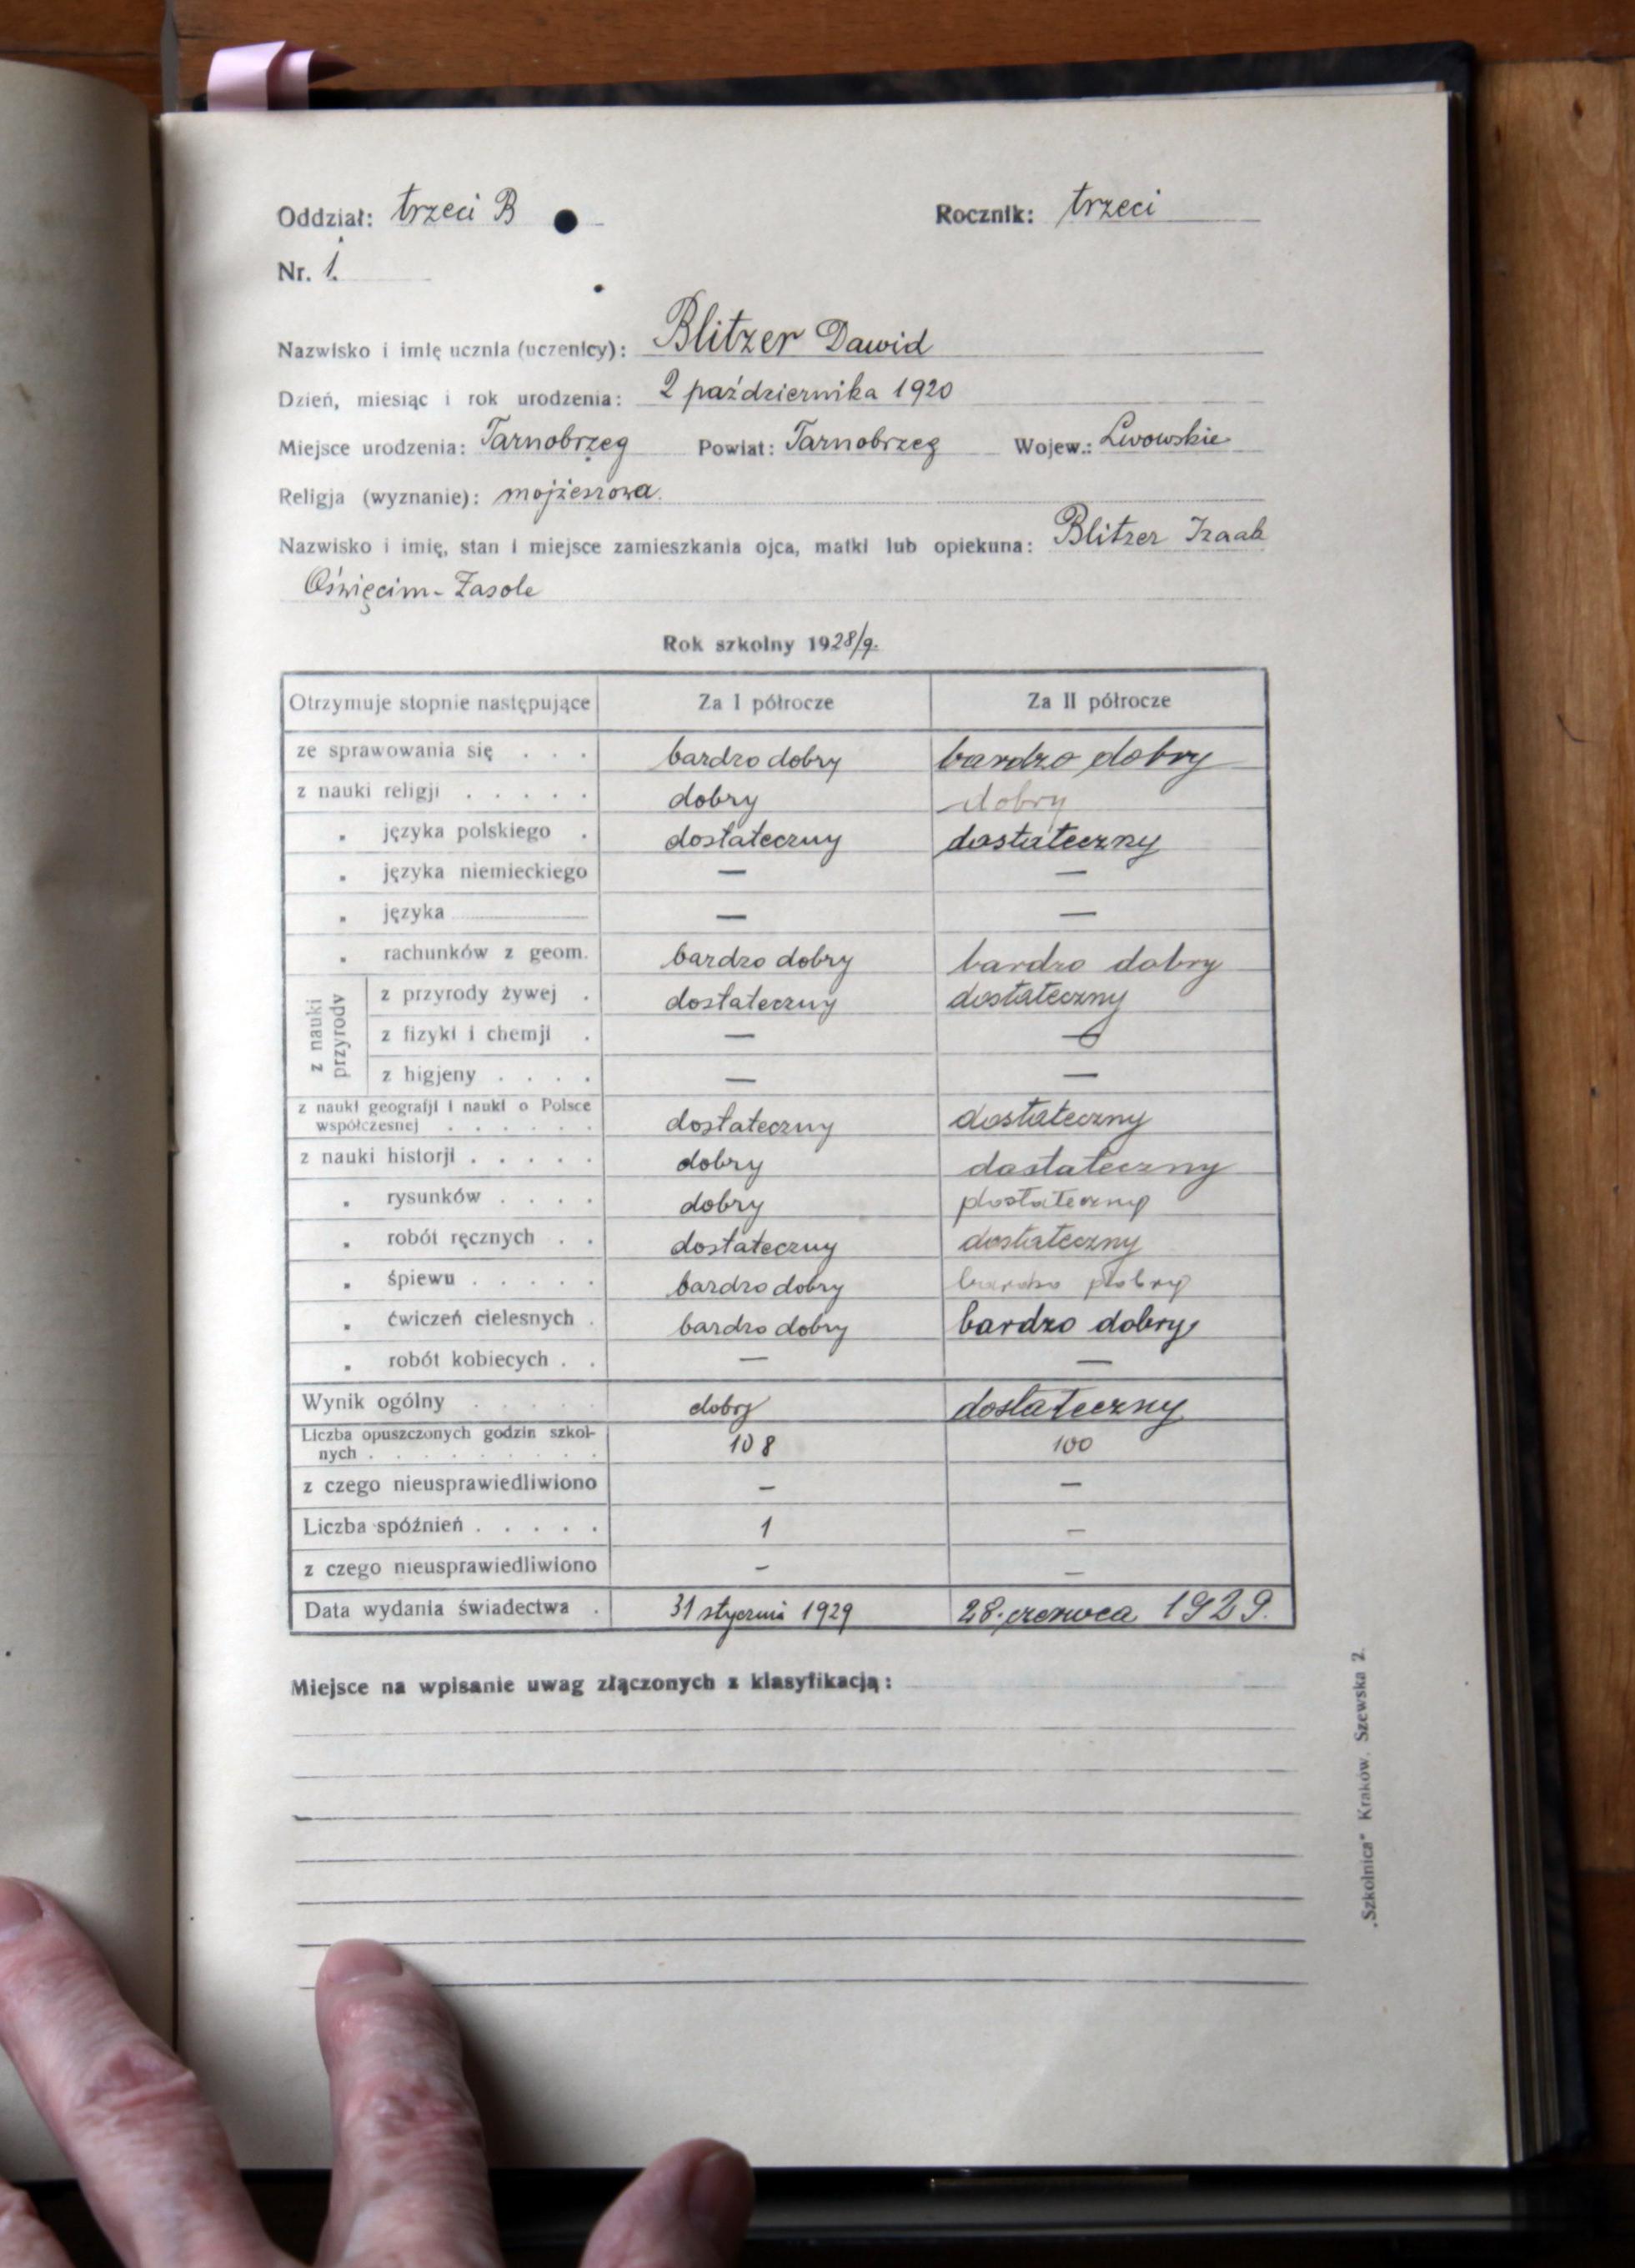 Oddział: trzeci B Rocznik: trzeci
Nr. 1.
Nazwisko i imię ucznia (uczenicy): Blitzer Dawid
Dzień, miesiąc i rok urodzenia: 2 października 1920
Miejsce urodzenia: Tarnobrzeg Powiat: Tarnobrzeg Wojew.: Lwowskie
Religja (wyznanie): mojżeszowa.
Nazwisko i imię, stan i miejsce zamieszkania ojca, matki lub opiekuna: Blitzer Izaak
Oświęcim-Zasole
Rok szkolny 1928/9.
Otrzymuje stopnie następujące Za I półrocze Za II półrocze
ze sprawowania się . . . bardzo dobry bardzo dobry
z nauki religji . . . . . dobry dobry
" języka polskiego . dostateczny dostateczny
" języka niemieckiego — —
" języka — —
" rachunków z geom. bardzo dobry bardzo dobry
z nauki przyrody
z przyrody żywej . dostateczny dostateczny
z fizyki i chemji . — —
z higjeny . . . . — —
z nauki geografji i nauki o Polsce
współczesnej . . . . . . dostateczny dostateczny
z nauki historji . . . . . dobry dostateczny
" rysunków . . . . dobry dostateczny
" robót ręcznych . . dostateczny dostateczny
" śpiewu . . . . . bardzo dobry bardzo dobry
" ćwiczeń cielesnych . bardzo dobry bardzo dobry
" robót kobiecych . . — —
Wynik ogólny . . . . . dobry dostateczny
Liczba opuszczonych godzin szkol-
nych . . . . . . . . . 108 100
z czego nieusprawiedliwiono – –
Liczba spóźnień . . . . . 1 –
z czego nieusprawiedliwiono – –
Data wydania świadectwa . 31 stycznia 1929 28. czerwca 1929.
Miejsce na wpisanie uwag złączonych z klasyfikacją:
„Szkolnica" Kraków, Szewska 2.